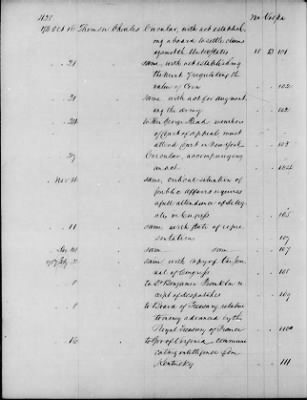 No Vol Pa
1786 Oct 16 Thomson Charles Circular, with act establish
ing a board to settle claims
against the United States 18 B 101
" 21 same, with act establishing
the mint & regulating the
value of Coin " " 102
" 21 same with act for augment
ing the army " " 102
" 24 to Hon George Read members
of Court of appeals must
attend Court in New York " " 103
" 27 Circular, accompanying
an act " "
Nov 10 same, critical situation of
public affairs requires
a full attendance of dele ga
tes in Congress " " 105
" 11 same with state of repre
sentation " " 107
same same " " 107
1787 Feby same with copy of the Jour
nal of Congress " " 108
" 8 to Dr Benjamin Franklin re
ceipt of despatches " " 109
" 8 to Board of Treasury, relative
to money advanced by the
Royal Treasury of France " "
" 16 to Gov of Virginia communi
cating intelligence from
Kentucky " " 111